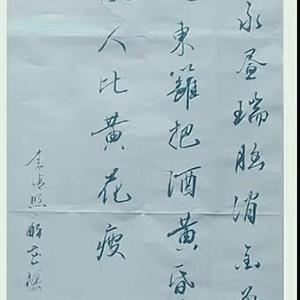 永昼瑞脑消金
東籬把酒黄昏
人比黄花瘦
李清照醉花陰